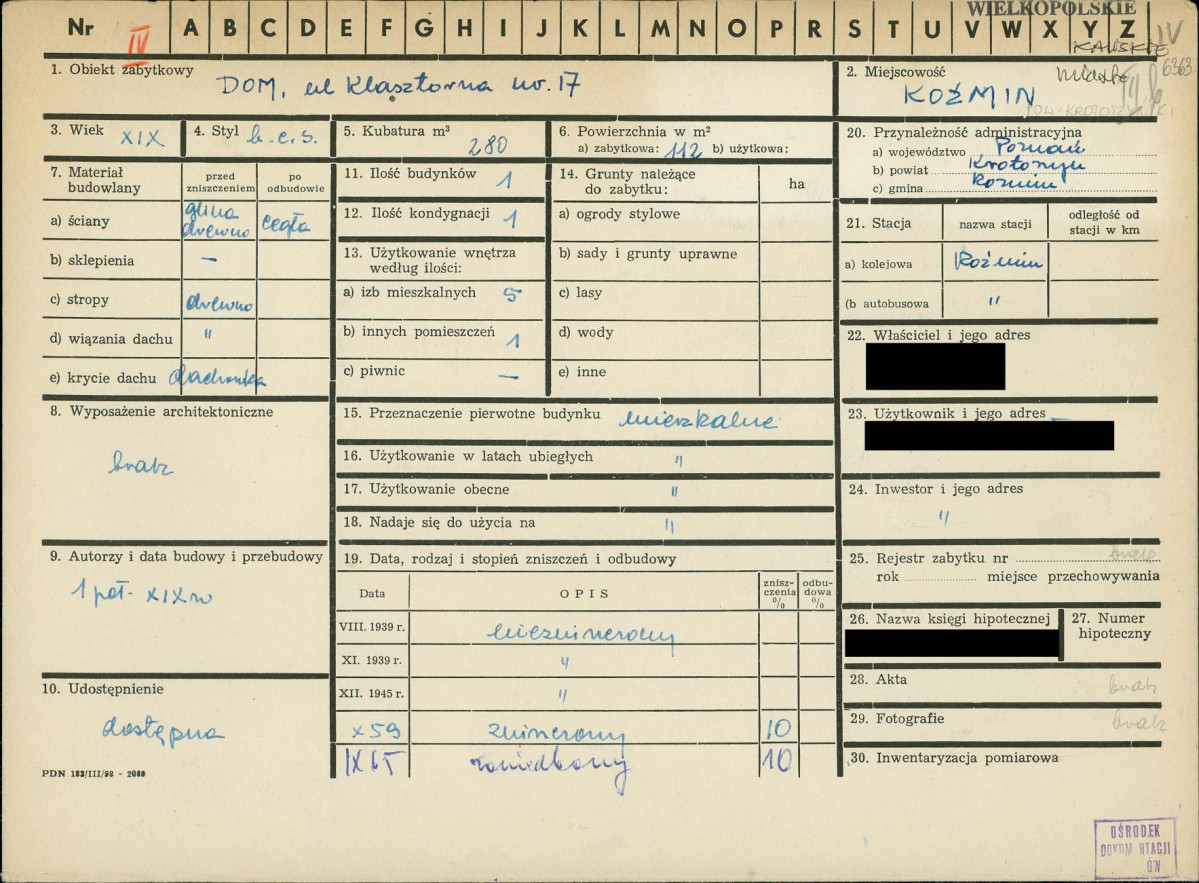 WIELKOPOLSKIE
Nr IV A B C D E F G H I J K L M N O P R S T U V W X Y Z
IV
KALISKIE
6363
1. Obiekt zabytkowy DOM, ul Klasztorna nr. 17
2. Miejscowość miasto
KOŹMIN
POW. KROTOSZYŃSKI
3. Wiek XIX
4. Styl b.c.s.
5. Kubatura m³ 280
6. Powierzchnia w m²
a) zabytkowa: 112 b) użytkowa:
20. Przynależność administracyjna
a) województwo Poznań
b) powiat Krotoszyn
c) gmina Koźmin
7. Materiał budowlany
przed zniszczeniem
po odbudowie
a) ściany glina drewno cegła
b) sklepienia —
c) stropy drewno
d) wiązania dachu "
e) krycie dachu dachówka
11. Ilość budynków 1
12. Ilość kondygnacji 1
13. Użytkowanie wnętrza według ilości:
a) izb mieszkalnych 5
b) innych pomieszczeń 1
c) piwnic —
14. Grunty należące do zabytku:
ha
a) ogrody stylowe
b) sady i grunty uprawne
c) lasy
d) wody
e) inne
21. Stacja
nazwa stacji
odległość od stacji w km
a) kolejowa Koźmin
(b autobusowa "
22. Właściciel i jego adres
23. Użytkownik i jego adres
24. Inwestor i jego adres
"
8. Wyposażenie architektoniczne
brak
15. Przeznaczenie pierwotne budynku mieszkalne
16. Użytkowanie w latach ubiegłych "
17. Użytkowanie obecne "
18. Nadaje się do użycia na "
9. Autorzy i data budowy i przebudowy
1 poł. XIX w
19. Data, rodzaj i stopień zniszczeń i odbudowy
Data
OPIS
znisz-
czenia
%
odbu-
dowa
%
VIII. 1939 r. niezniszczony
XI. 1939 r. "
XII. 1945 r. "
X 59 zniszczony 10
IX 65 zaniedbany 10
10. Udostępnienie
dostępna
25. Rejestr zabytku nr brak
rok miejsce przechowywania
26. Nazwa księgi hipotecznej
27. Numer hipoteczny
28. Akta brak
29. Fotografie brak
30. Inwentaryzacja pomiarowa
PDN 182/III/58 - 2000
OŚRODEK
DOKUM NTACJI
ÓW